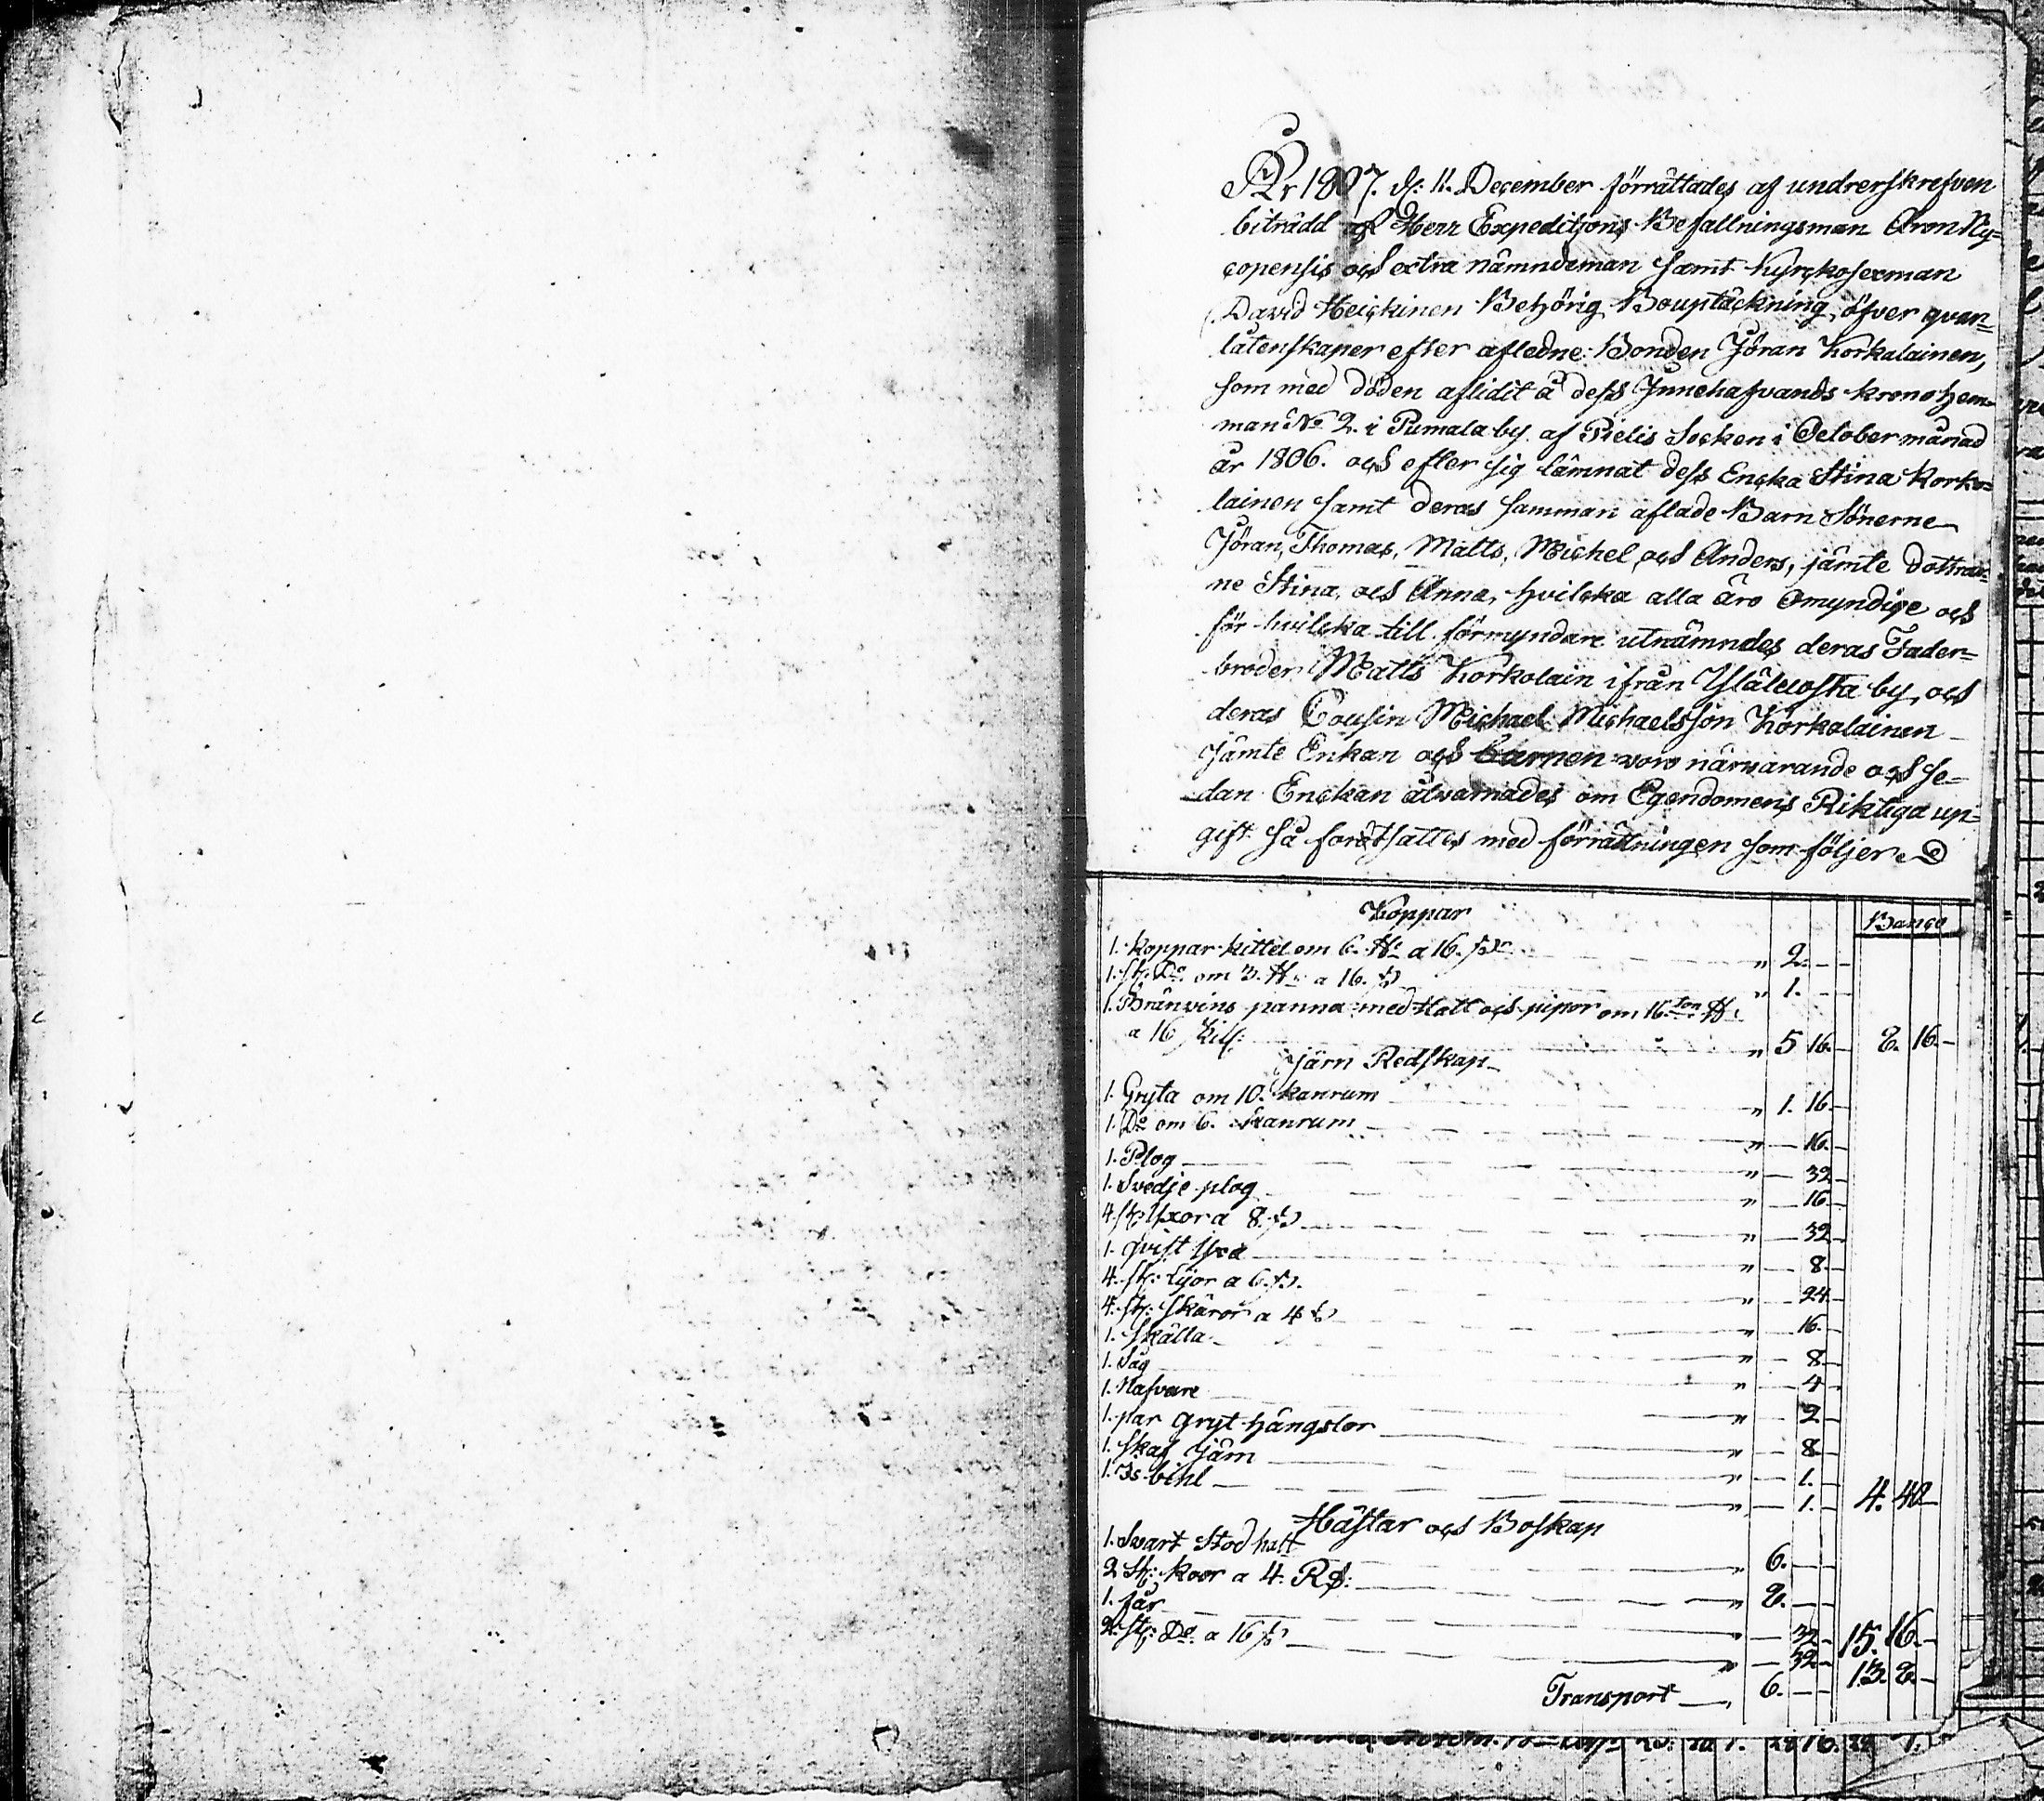 År 1807. d: 11. December förrättades af undrerskrefven
biträdd af Herr Expeditjons Befallningsman Aron Ny=
copensis och extra nämndeman samt kyrckosexman
David Heickinen Behörig Bouptäckning öfver qvar=
låtenskaper efter afledne Bonden Jöran Korkalainen,
som med döden aflidit å dess Innehafvands krono hem=
man No 2. i Pumala by af Pielis Socken i October månad
år 1806. och efter sig lämnat dess Encka Stina Korko=
lainen samt deras samman aflade Barn Sönerne
Jöran, Thomas, Matts, Michel, och Anders, jämte dottrar=
ne Stina, och Anna, hvilcka alla äro Omyndige och
för hvilcka till förmyndare utnämndes deras Fader=
broder Matts Korkolain ifrån by, och
deras Cousin Michael Michaelsson Korkalainen
Jämte Enkan och Barnen voro närvarande och se=
dan Enckan åtvarnades om Egendomens Riktiga up=
gift så fortsattes med förrättningen som följer
Koppar
Banco
1. koppar kittel om 6. ℔ a 16. s " 2. —
1. st: Do. om 3. ℔ a 16. s " 1. —
1. Bränvins panna med Hatt och pipor om 16. ℔
a 16 skill: " 5 16. — 8. 16. —
Järn Redskap
1. Gryta om 10. kanrum " 1. 16. —
1. Do om 6. kanrum " — 16. —
1. Plog " — 32 —
1. Svedje plog " — 16. —
4. st: Yxor a 8. s " — 32 —
1. qvist Yxa " — 8. —
4. st: Lijor a 6. s. " — 24. —
4. st: Skäror a 4 s " — 16. —
1. Skälla " — 8 —
1. Såg " — 4 —
1. Nafvare " — 2 —
1. par Gryt hängslor " — 8 —
1. Skaf Järn " — 1. —
1. Is bihl " — 1. — 4. 40 —
Hästar och Boskap
1. Svart Stod hatt " 6. —
2 St: koor a 4: Rd: " 8. —
1. får " — 32 —
2. st: Do. a 16 s " — 32 — 15. 16. —
Transport — 6. — 13. 8. —